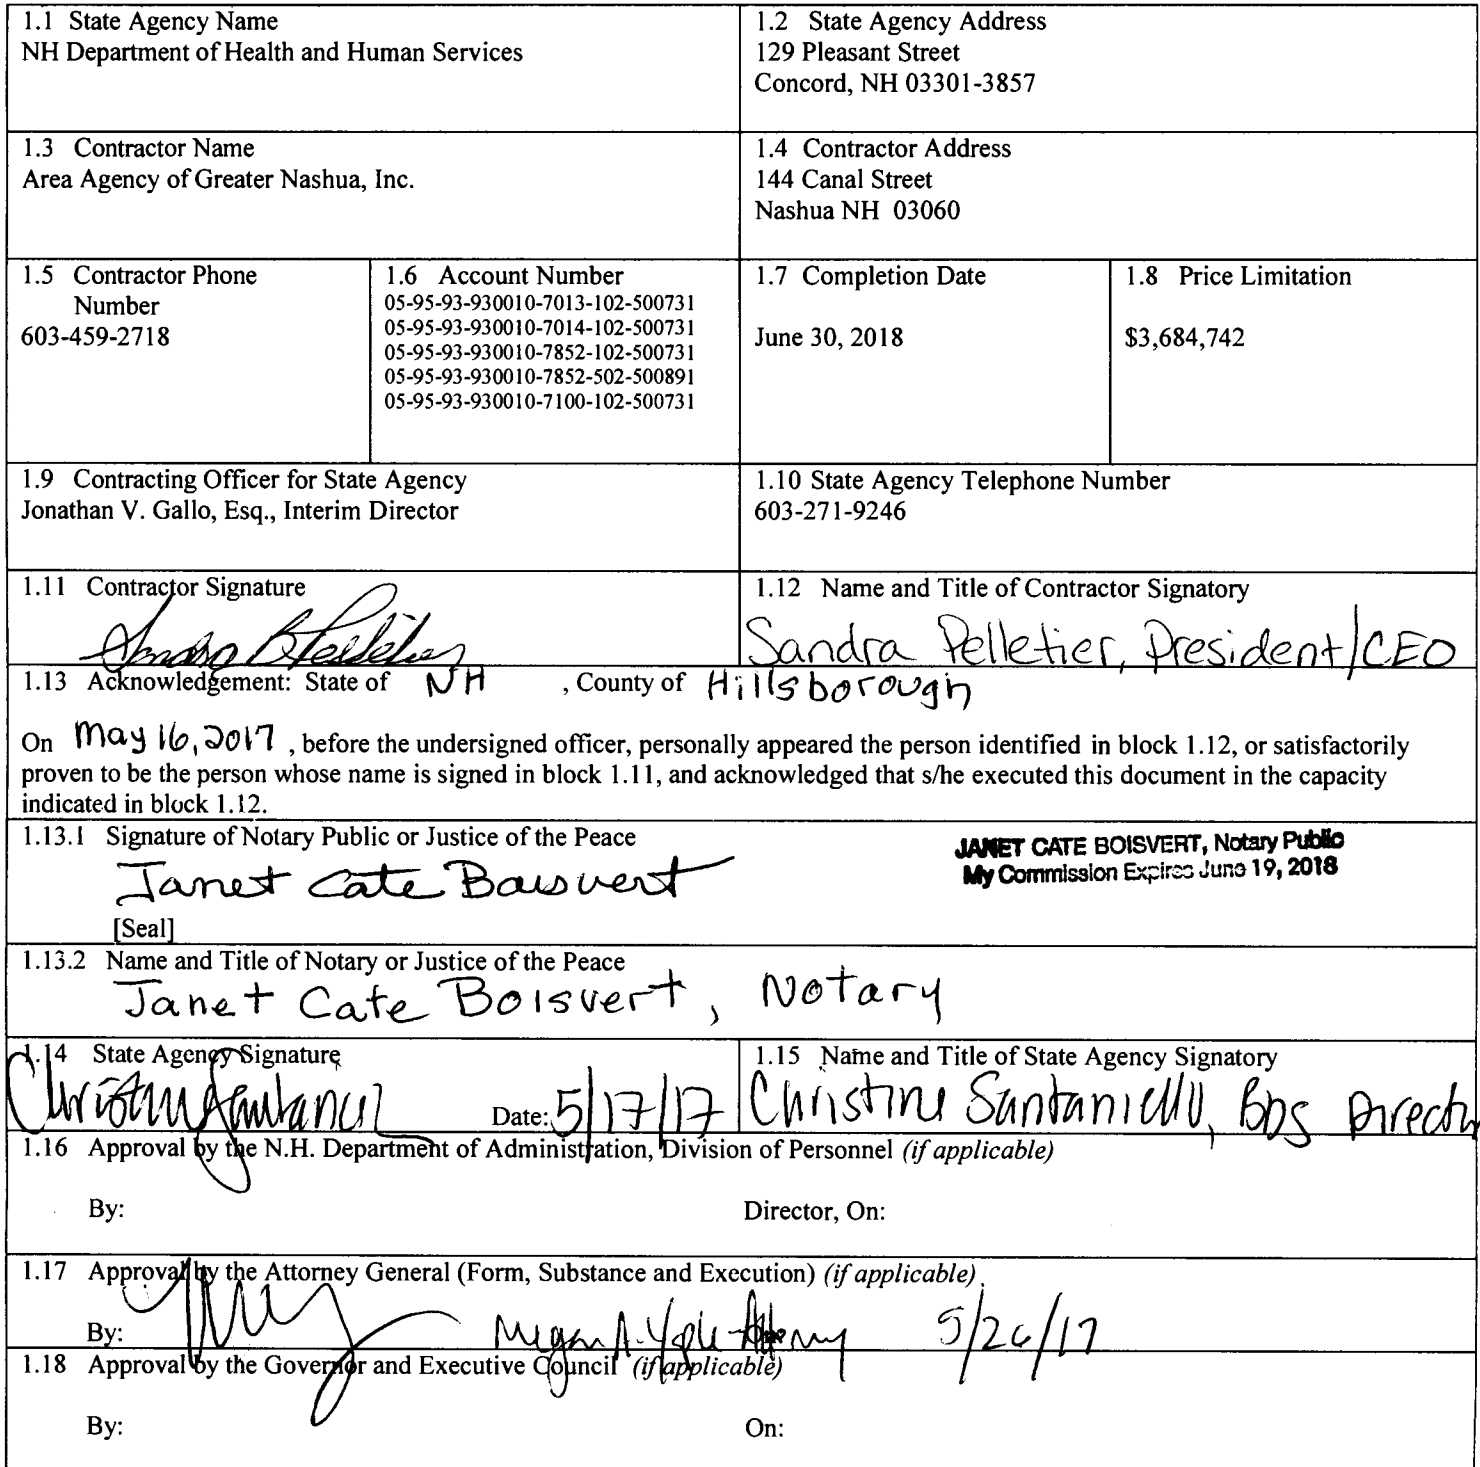 1.1 State Agency Name
NH Department of Health and Human Services
1.2 State Agency Address
129 Pleasant Street
Concord, NH 03301-3857
1.3 Contractor Name
Area Agency of Greater Nashua, Inc.
1.4 Contractor Address
144 Canal Street
Nashua NH 03060
1.5 Contractor Phone
Number
603-459-2718
1.6 Account Number
05-95-93-930010-7013-102-500731
05-95-93-930010-7014-102-500731
05-95-93-930010-7852-102-500731
05-95-93-930010-7852-502-500891
05-95-93-930010-7100-102-500731
1.7 Completion Date
June 30, 2018
1.8 Price Limitation
$3,684,742
1.9 Contracting Officer for State Agency
Jonathan V. Gallo, Esq., Interim Director
1.10 State Agency Telephone Number
603-271-9246
1.11 Contractor Signature
Sandra B Pelletier
1.12 Name and Title of Contractor Signatory
Sandra Pelletier, President/CEO
1.13 Acknowledgement: State of NH , County of Hillsborough
On May 16, 2017 , before the undersigned officer, personally appeared the person identified in block 1.12, or satisfactorily
proven to be the person whose name is signed in block 1.11, and acknowledged that s/he executed this document in the capacity
indicated in block 1.12.
1.13.1 Signature of Notary Public or Justice of the Peace
JANET CATE BOISVERT, Notary Public
My Commission Expires June 19, 2018
Janet Cate Boisvert
[Seal]
1.13.2 Name and Title of Notary or Justice of the Peace
Janet Cate Boisvert, Notary
1.14 State Agency Signature
Date: 5/17/17
1.15 Name and Title of State Agency Signatory
Christine Santaniello, BDS Director
1.16 Approval by the N.H. Department of Administration, Division of Personnel (if applicable)
By: Director, On:
1.17 Approval by the Attorney General (Form, Substance and Execution) (if applicable)
By: Megan A. Attorney 5/26/17
1.18 Approval by the Governor and Executive Council (if applicable)
By: On: